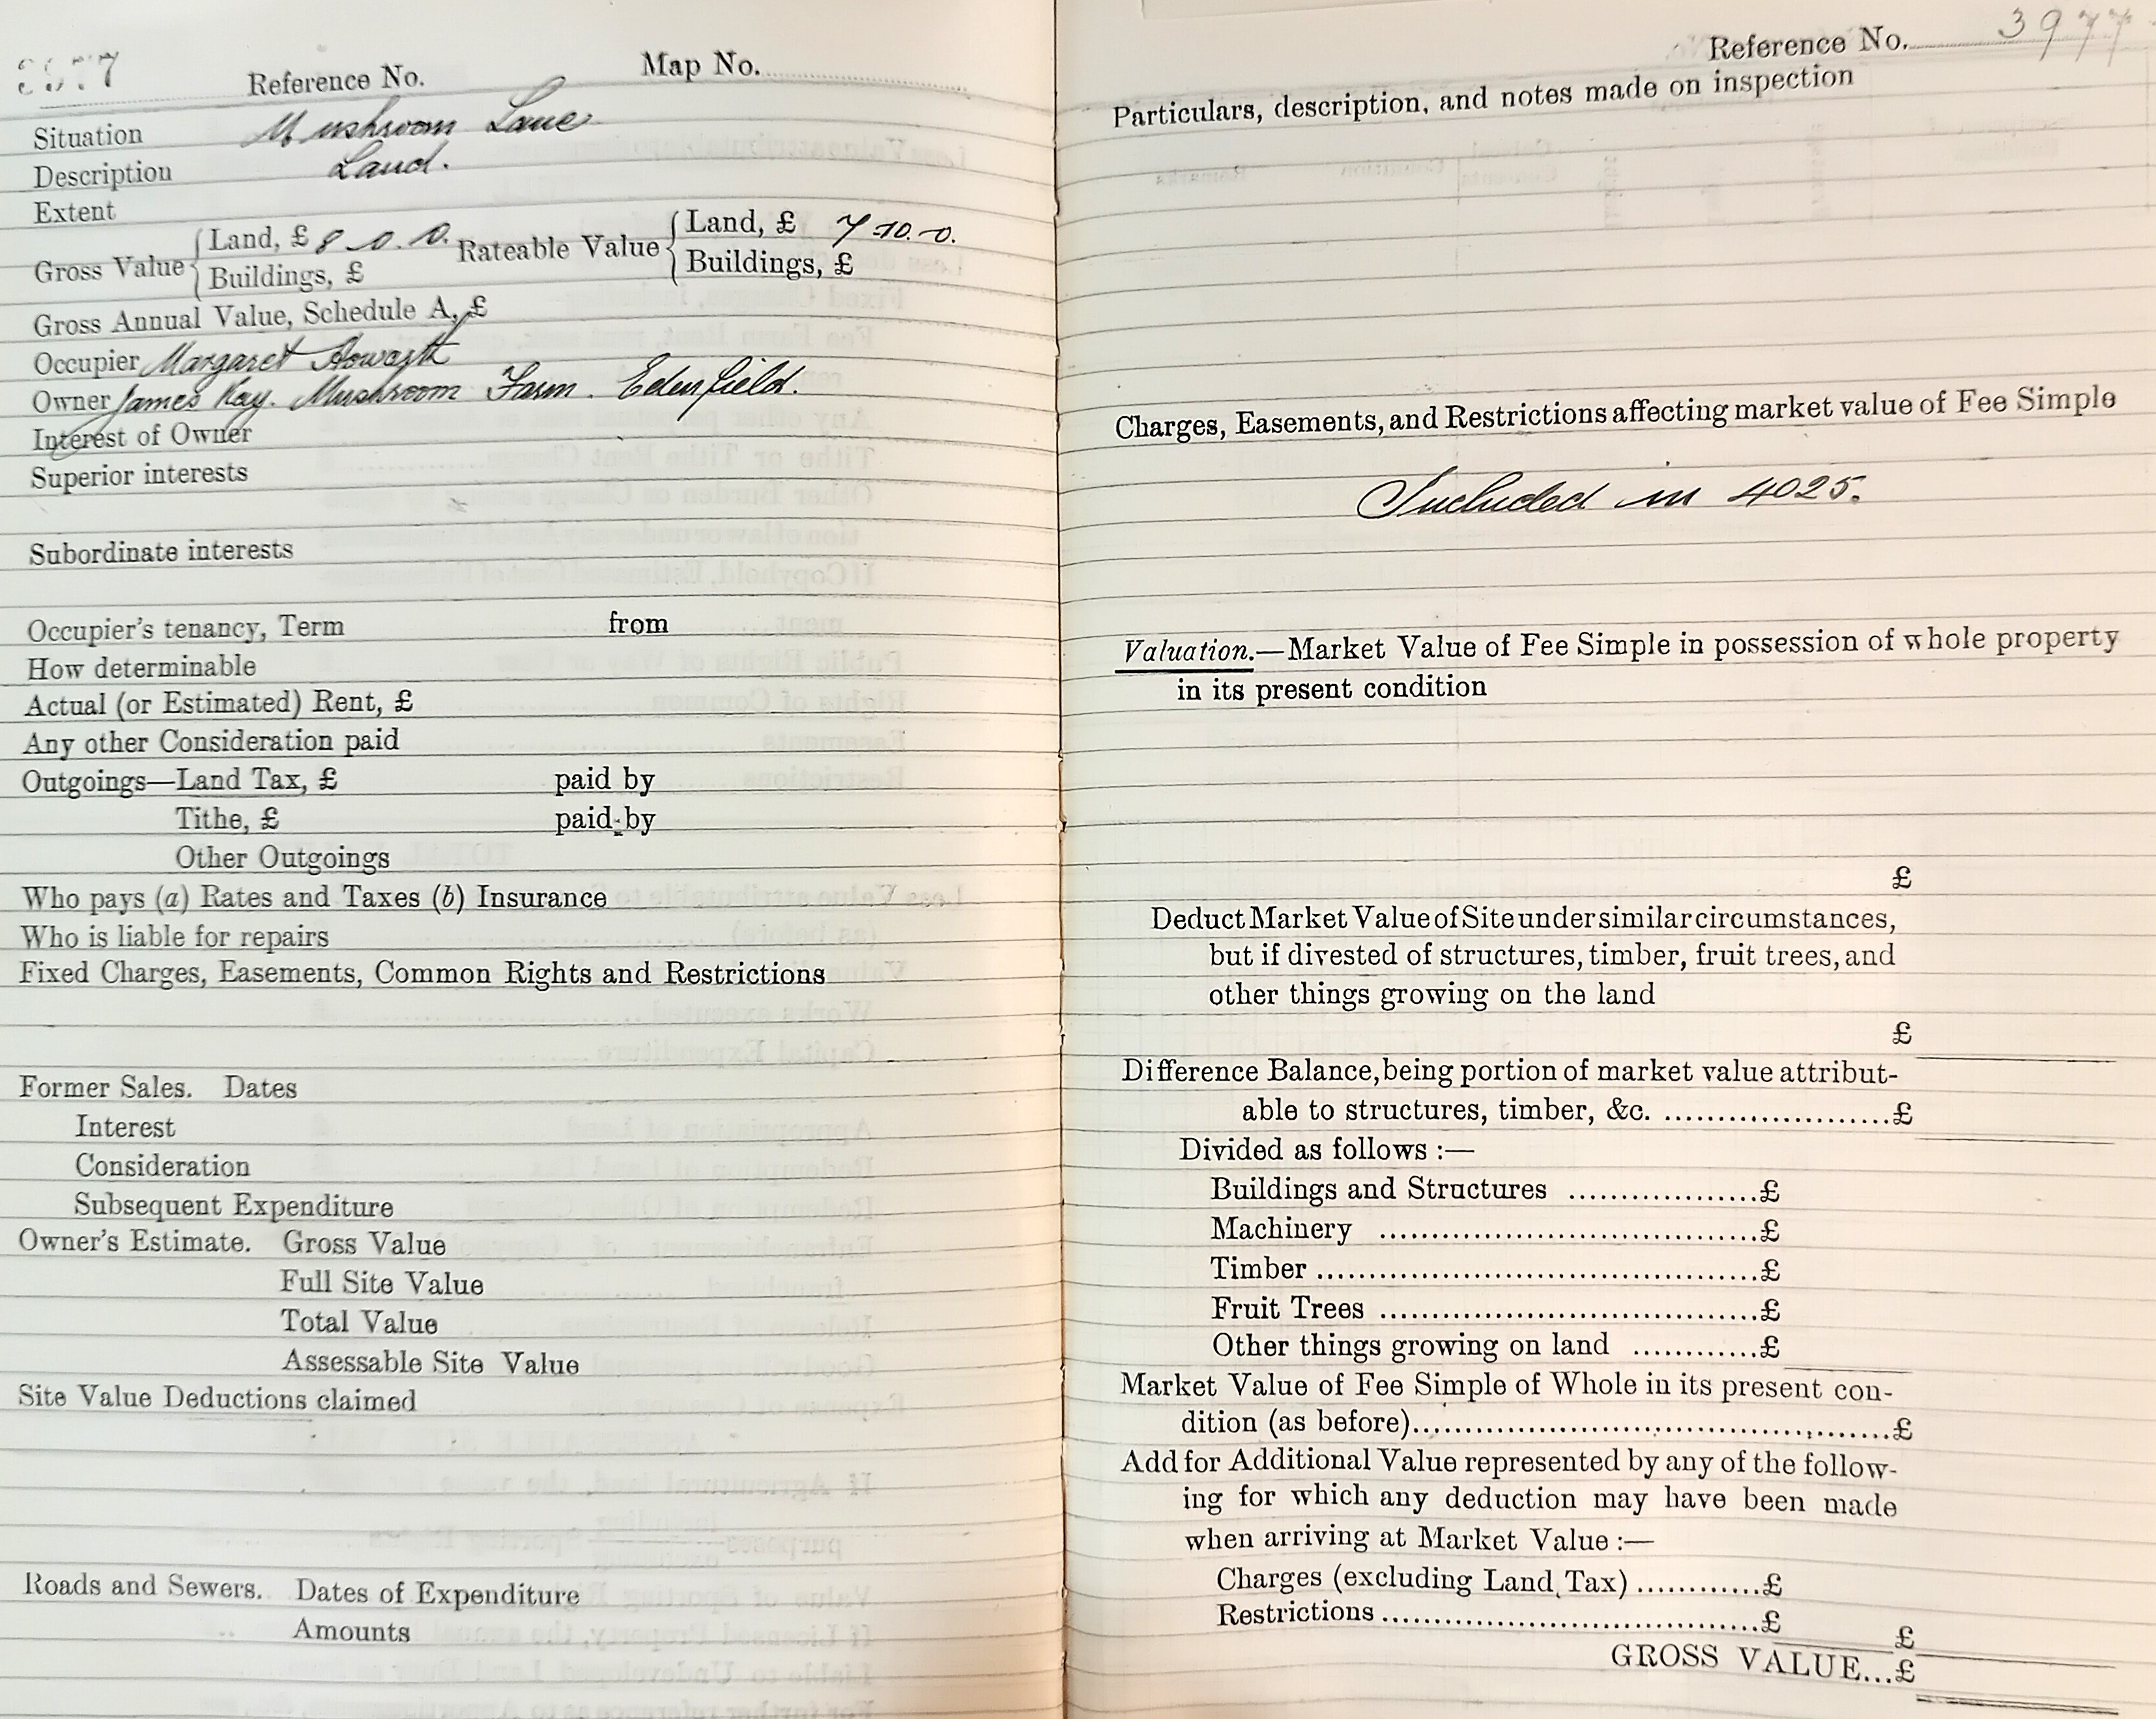 Reference No. Map No.
Situation Mushroom Lane
Description Land.
Extent
Gross Value { Land, £ 8-0.0. Rateable Value { Land, £ 7-10-0.
Buildings, £ Buildings, £
Gross Annual Value, Schedule A, £
Occupier Margaret Howarth
Owner James Kay. Mushroom Farm. Edenfield.
Interest of Owner
Superior interests
Subordinate interests
Occupier's tenancy, Term from
How determinable
Actual (or Estimated) Rent, £
Any other Consideration paid
Outgoings—Land Tax, £ paid by
Tithe, £ paid by
Other Outgoings
Who pays (a) Rates and Taxes (b) Insurance
Who is liable for repairs
Fixed Charges, Easements, Common Rights and Restrictions
Former Sales. Dates
Interest
Consideration
Subsequent Expenditure
Owner's Estimate. Gross Value
Full Site Value
Total Value
Assessable Site Value
Site Value Deductions claimed
Roads and Sewers. Dates of Expenditure
Amounts
Reference No. 3977
Particulars, description, and notes made on inspection
Charges, Easements, and Restrictions affecting market value of Fee Simple
Included in 4025.
Valuation.—Market Value of Fee Simple in possession of whole property
in its present condition
£
Deduct Market Value of Site under similar circumstances,
but if divested of structures, timber, fruit trees, and
other things growing on the land
£
Difference Balance, being portion of market value attribut-
able to structures, timber, &c. .....................£
Divided as follows :—
Buildings and Structures ..................£
Machinery ....................................£
Timber ..........................................£
Fruit Trees ....................................£
Other things growing on land ............£
Market Value of Fee Simple of Whole in its present con-
dition (as before)..............................................£
Add for Additional Value represented by any of the follow-
ing for which any deduction may have been made
when arriving at Market Value :—
Charges (excluding Land Tax) ............£
Restrictions ....................................£ £
GROSS VALUE...£